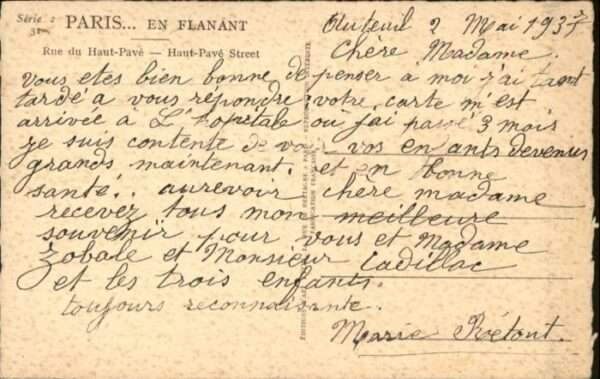 Série :
PARIS... EN FLANANT
Rue du Haut-Pavé — Haut-Pavé Street
Auteuil 2 Mai 1937
Chere Madame
vous etes bien bonne de penser à moi j'ai tant
tardé a vous répondre votre carte m'est
arrivée à L'Hopitale ou j'ai passé 3 mois
je suis contente de voir vos enfants devenus
grands maintenant. et en bonne
santé.. aurevoir chere madame
recevez tous mon meilleure
souvenir pour vous et Madame
Zobale et Monsieur Cadillac
et les trois enfants.
toujours reconnaissante.
Marie Rétout.